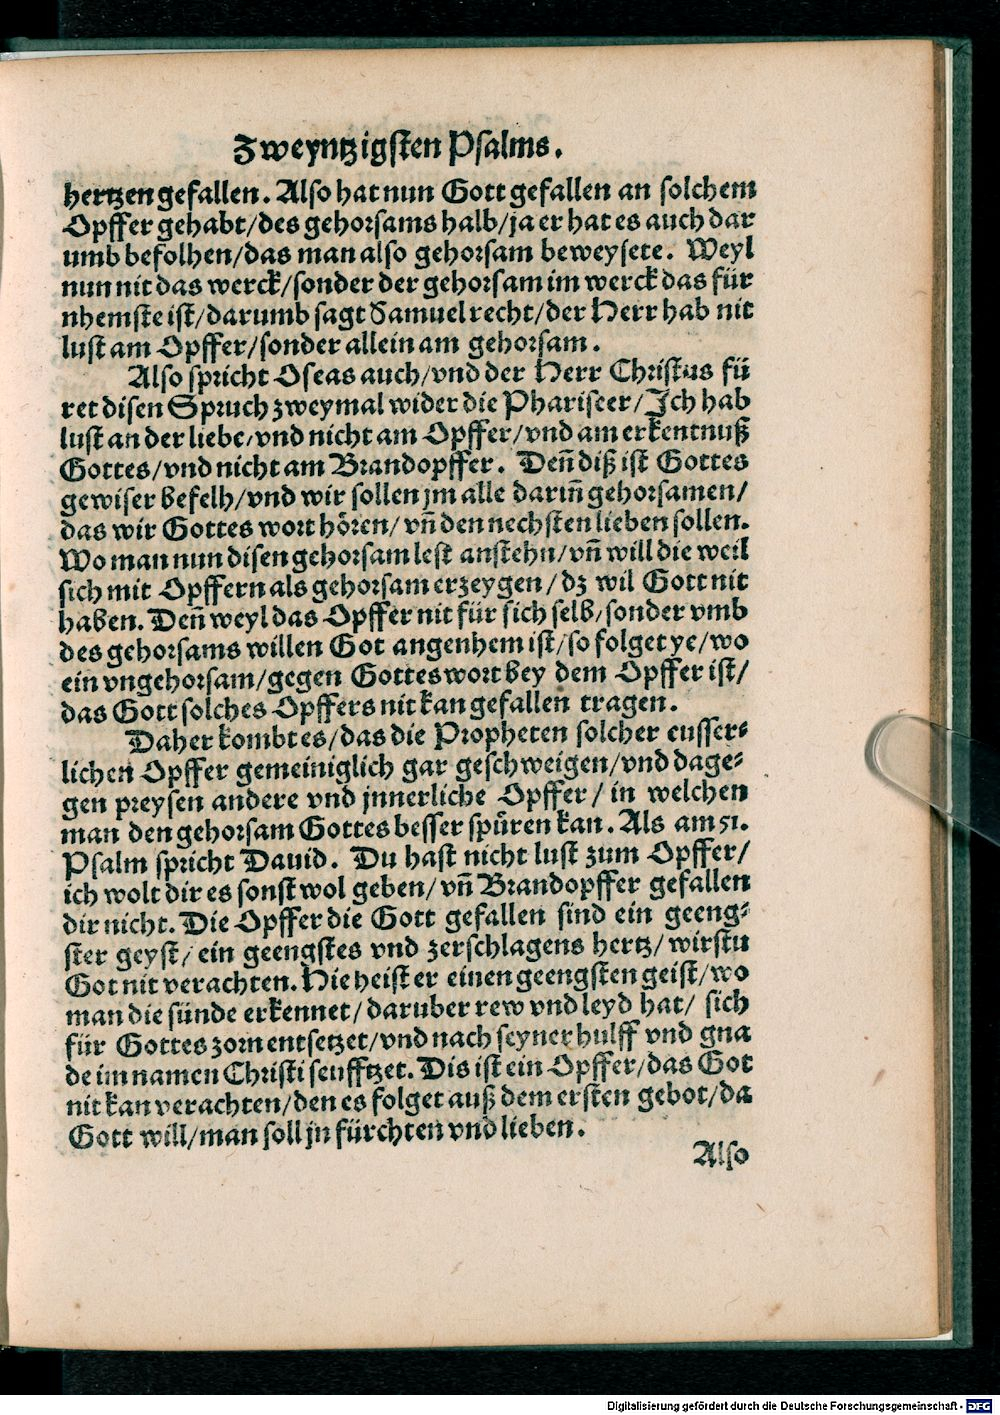 Zweyntzigsten Psalms.
hertzen gefallen. Also hat nun Gott gefallen an solchem
Opffer gehabt/des gehorsams halb/ja er hat es auch dar
umb befolhen/das man also gehorsam beweysete. Weyl
nun nit das werck/sonder der gehorsam im werck das für
nhemste ist/darumb sagt Samuel recht/der Herr hab nit
lust am Opffer/sonder allein am gehorsam.
Also spricht Oseas auch/vnd der Herr Christus fü
ret disen Spruch zweymal wider die Phariseer/Ich hab
lust an der liebe/vnd nicht am Opffer/vnd am erkentnuß
Gottes/vnd nicht am Brandopffer. Deñ diß ist Gottes
gewiser befelh/vnd wir sollen jm alle dariñ gehorsamen/
das wir Gottes wort hören/vñ den nechsten lieben sollen.
Wo man nun disen gehorsam lest anstehn/vñ will die weil
sich mit Opffern als gehorsam erzeygen/dz wil Gott nit
haben. Deñ weyl das Opffer nit für sich selb/sonder vmb
des gehorsams willen Got angenhem ist/so folget ye/wo
ein vngehorsam/gegen Gottes wort bey dem Opffer ist/
das Gott solches Opffers nit kan gefallen tragen.
Daher kombt es/das die Propheten solcher eusser-
lichen Opffer gemeiniglich gar geschweigen/vnd dage-
gen preysen andere vnd jnnerliche Opffer/in welchen
man den gehorsam Gottes besser spüren kan. Als am 51.
Psalm spricht Dauid. Du hast nicht lust zum Opffer/
ich wolt dir es sonst wol geben/vñ Brandopffer gefallen
dir nicht. Die Opffer die Gott gefallen sind ein geeng-
ster geyst/ein geengstes vnd zerschlagens hertz/wirstu
Got nit verachten. Hie heist er einen geengsten geist/wo
man die sünde erkennet/daruber rew vnd leyd hat/sich
für Gottes zorn entsetzet/vnd nach seyner hulff vnd gna
de im namen Christi seufftzet. Dis ist ein Opffer/das Got
nit kan verachten/den es folget auß dem ersten gebot/da
Gott will/man soll jn fürchten vnd lieben.
Also
Digitalisierung gefördert durch die Deutsche Forschungsgemeinschaft - DFG